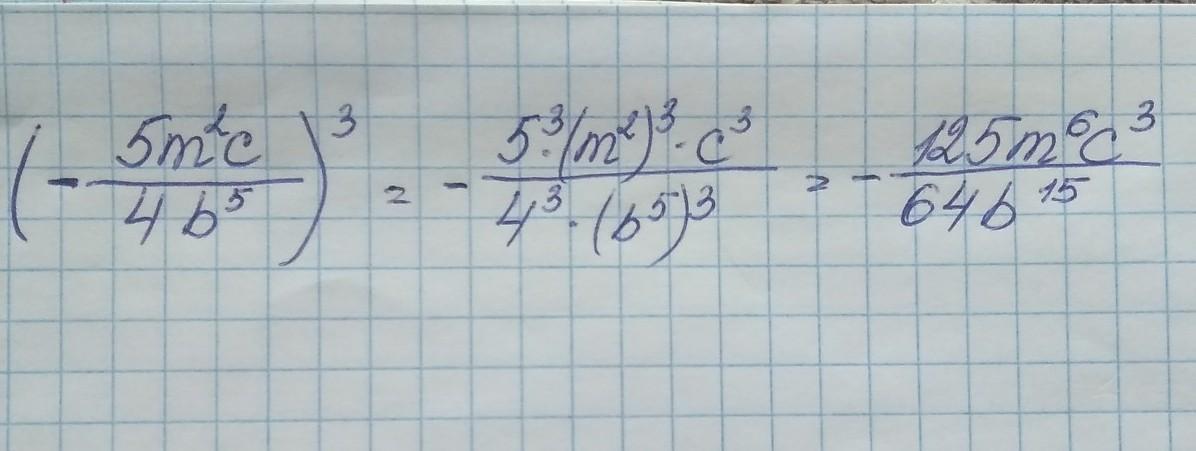 (-\frac{5m^2c}{4b^5})^3 = -\frac{5^3 \cdot (m^2)^3 \cdot c^3}{4^3 \cdot (b^5)^3} = -\frac{125m^6c^3}{64b^{15}}